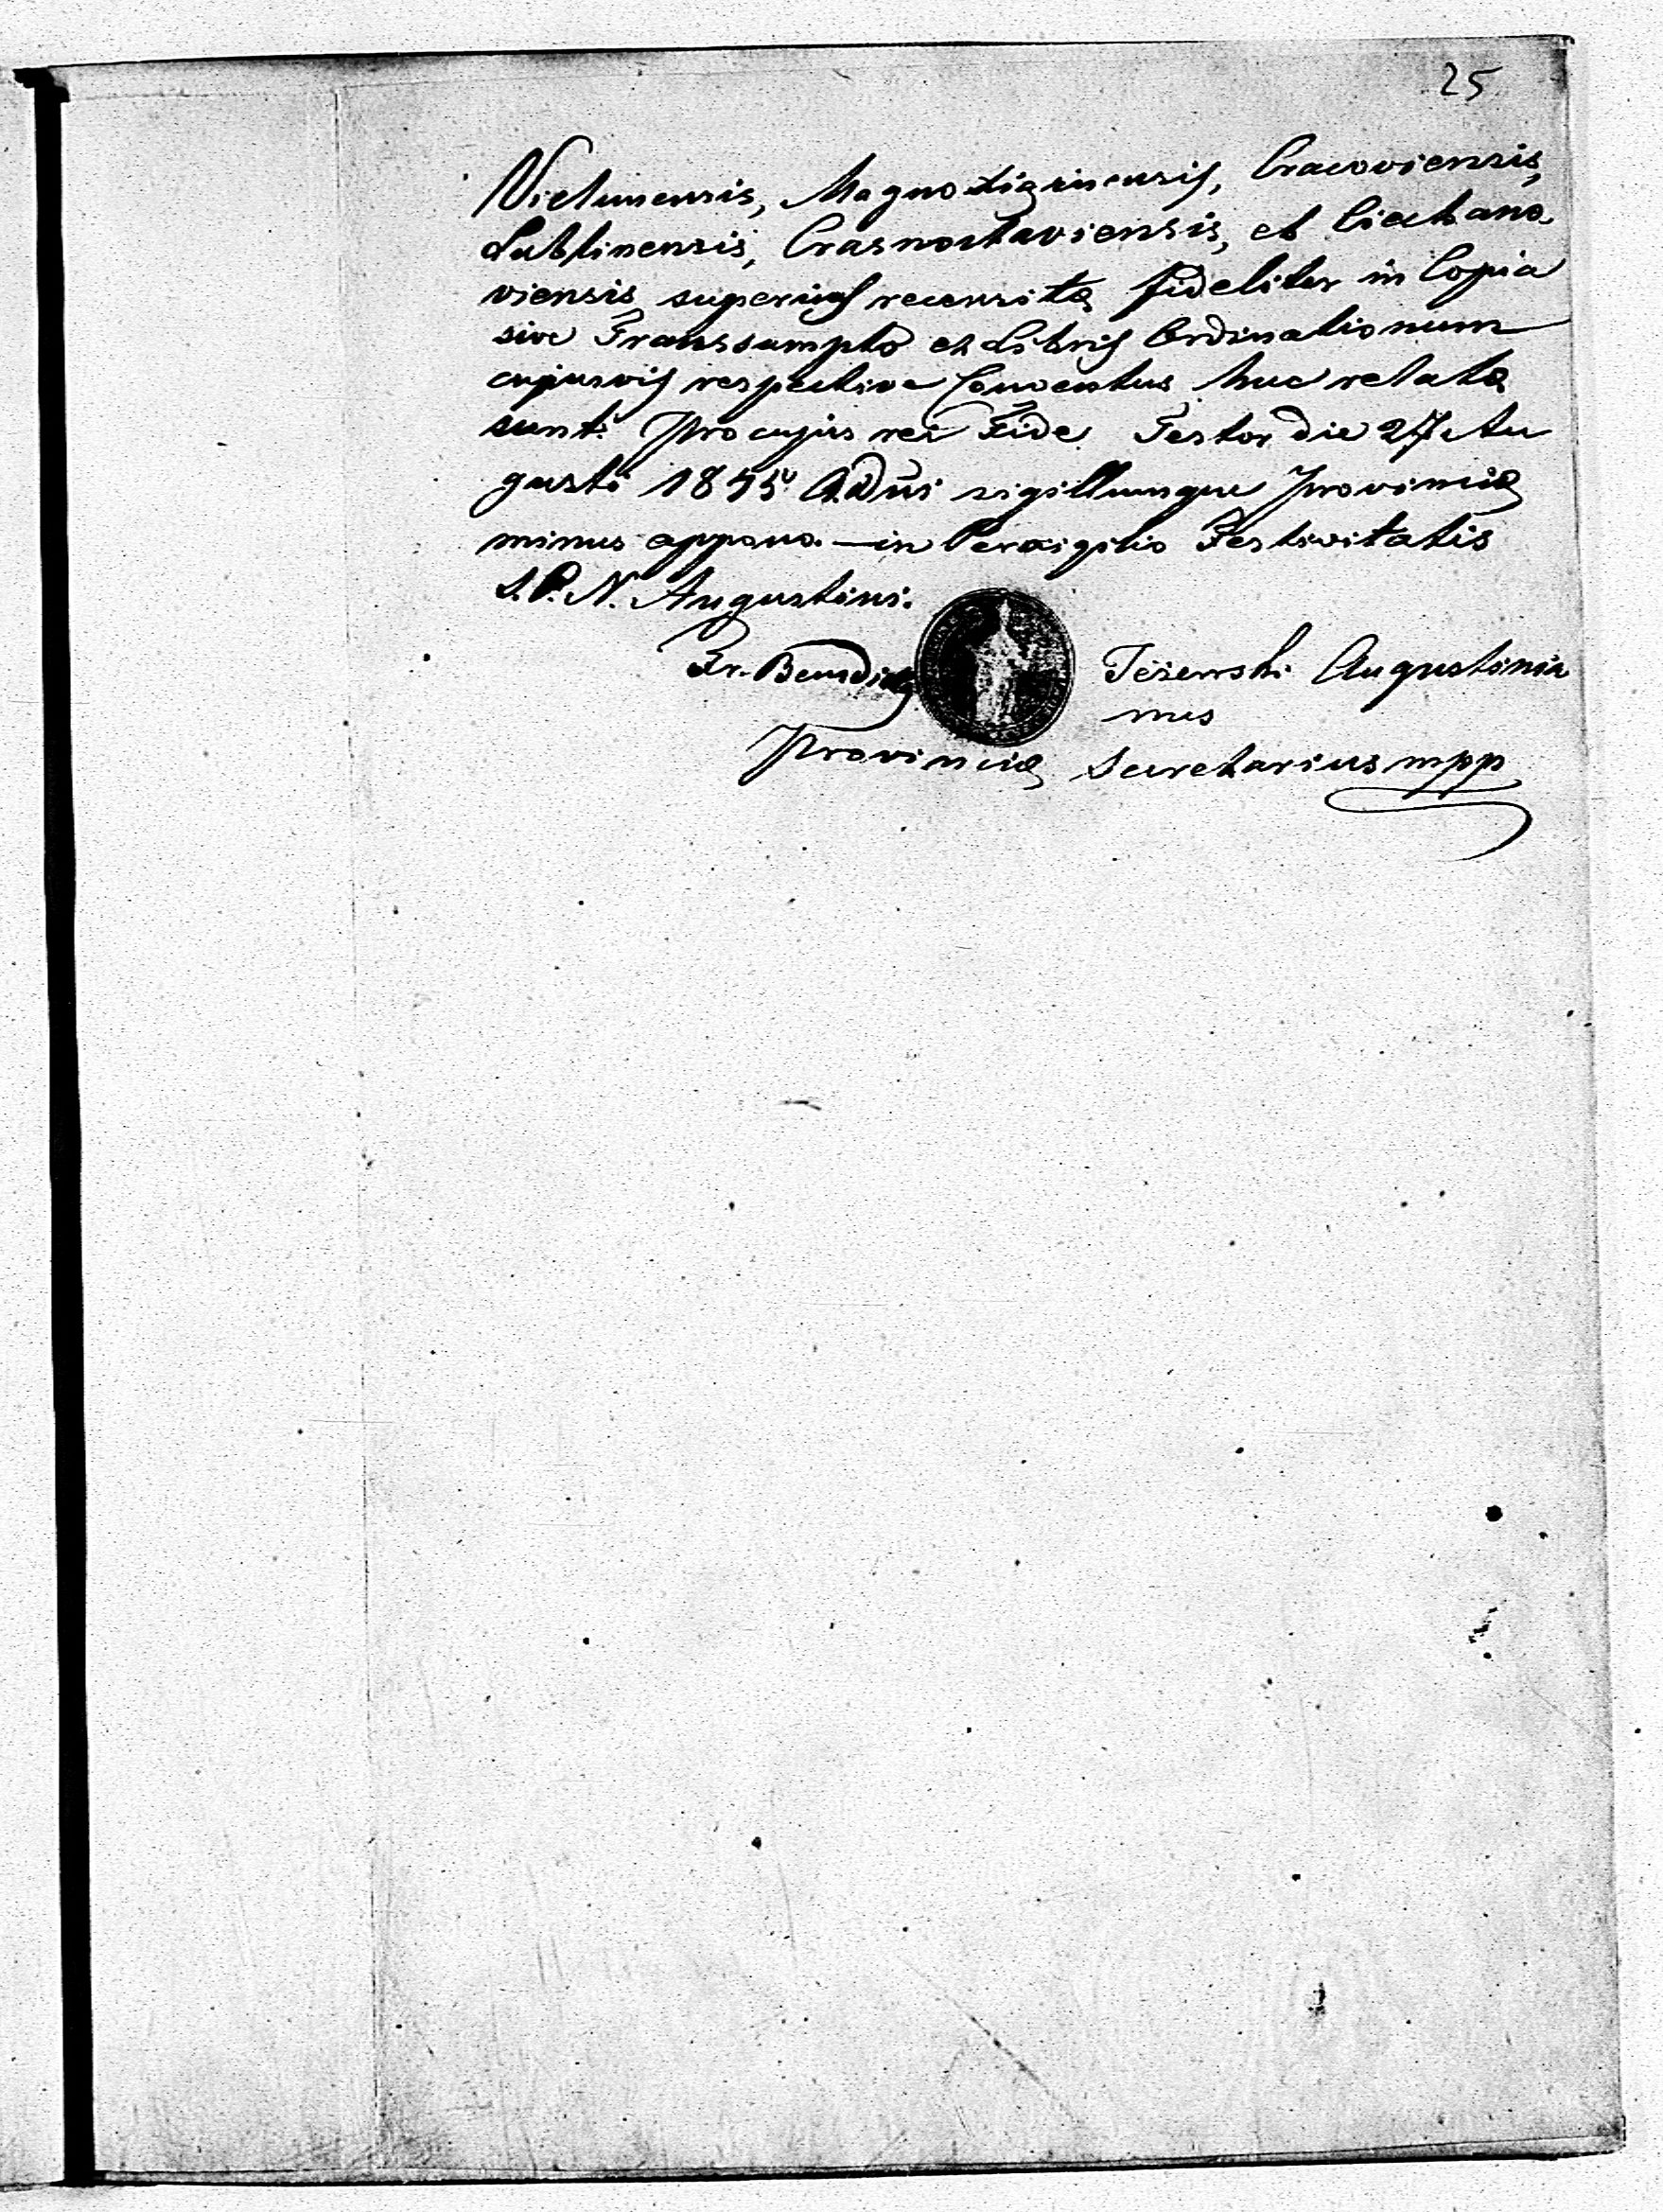 25
Vielunensis, Magno Ligninensis, Cracoviensis,
Lublinensis, Crasnostaviensis, et Ciechano
viensis superius recensita fideliter in Copia
sive Transsumpto ex Libris Ordinationum
cujusvis respective Conventus huc relata
sunt. Pro cujus rei Fide Testor die 27 Au
gusti 1855 A. Dñi sigillumque Provinciæ
minus appono. — in Pervigilio Festivitatis
S. P. N. Augustini.
Fr. Benedictus Jeżewski Augustinia
nus
Provinciæ Secretarius mpp